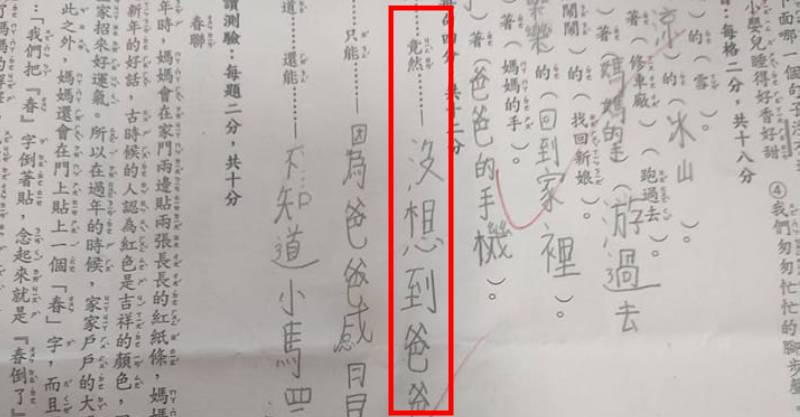 下面哪一個句子
小嬰兒睡得好香好甜 ④我們匆匆忙忙的腳步
：每格二分，共十八分
）著（雪）。
涼）的（冰山）。
）著（修車廠）。（跑過去）。
（媽媽的手（游過去
鬧鬧）的（找回新娘）。
樂樂）的（回到家裡）。
）著（媽媽的手）。
）著（爸爸的手機）。
四分 共十二分
……竟然……——沒想到爸爸
只能……——因為爸爸感冒
道……還能……——不知道小馬
讀測驗：每題二分，共十分
春聯
年時，媽媽會在家門兩邊貼兩張長長的紅紙條，媽媽
新年的好話，古時候的人認為紅色是吉祥的顏色，
家招來好運氣。所以在過年的時候，家家戶戶的大
此之外，媽媽還會在門上貼上一個「春」字，而且
：「我們把『春』字倒著貼，念起來就是『春倒了』